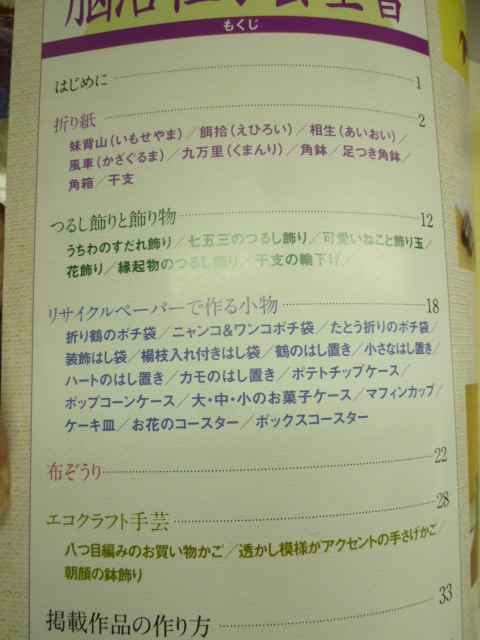 もくじ
はじめに 1
折り紙 2
妹背山（いもせやま）／餌拾（えひろい）／相生（あいおい）／
風車（かざぐるま）／九万里（くまんり）／角鉢／足つき角鉢／
角箱／干支
つるし飾りと飾り物 12
うちわのすだれ飾り／七五三のつるし飾り／可愛いねこと飾り玉／
花飾り／縁起物のつるし飾り／干支の輪下げ／
リサイクルペーパーで作る小物 18
折り鶴のポチ袋／ニャンコ＆ワンコポチ袋／たとう折りのポチ袋／
装飾はし袋／楊枝入れ付きはし袋／鶴のはし置き／小さなはし置き／
ハートのはし置き／カモのはし置き／ポテトチップケース／
ポップコーンケース／大・中・小のお菓子ケース／マフィンカップ／
ケーキ皿／お花のコースター／ボックスコースター
布ぞうり 22
エコクラフト手芸 28
八つ目編みのお買い物かご／透かし模様がアクセントの手さげかご／
朝顔の鉢飾り
掲載作品の作り方 33